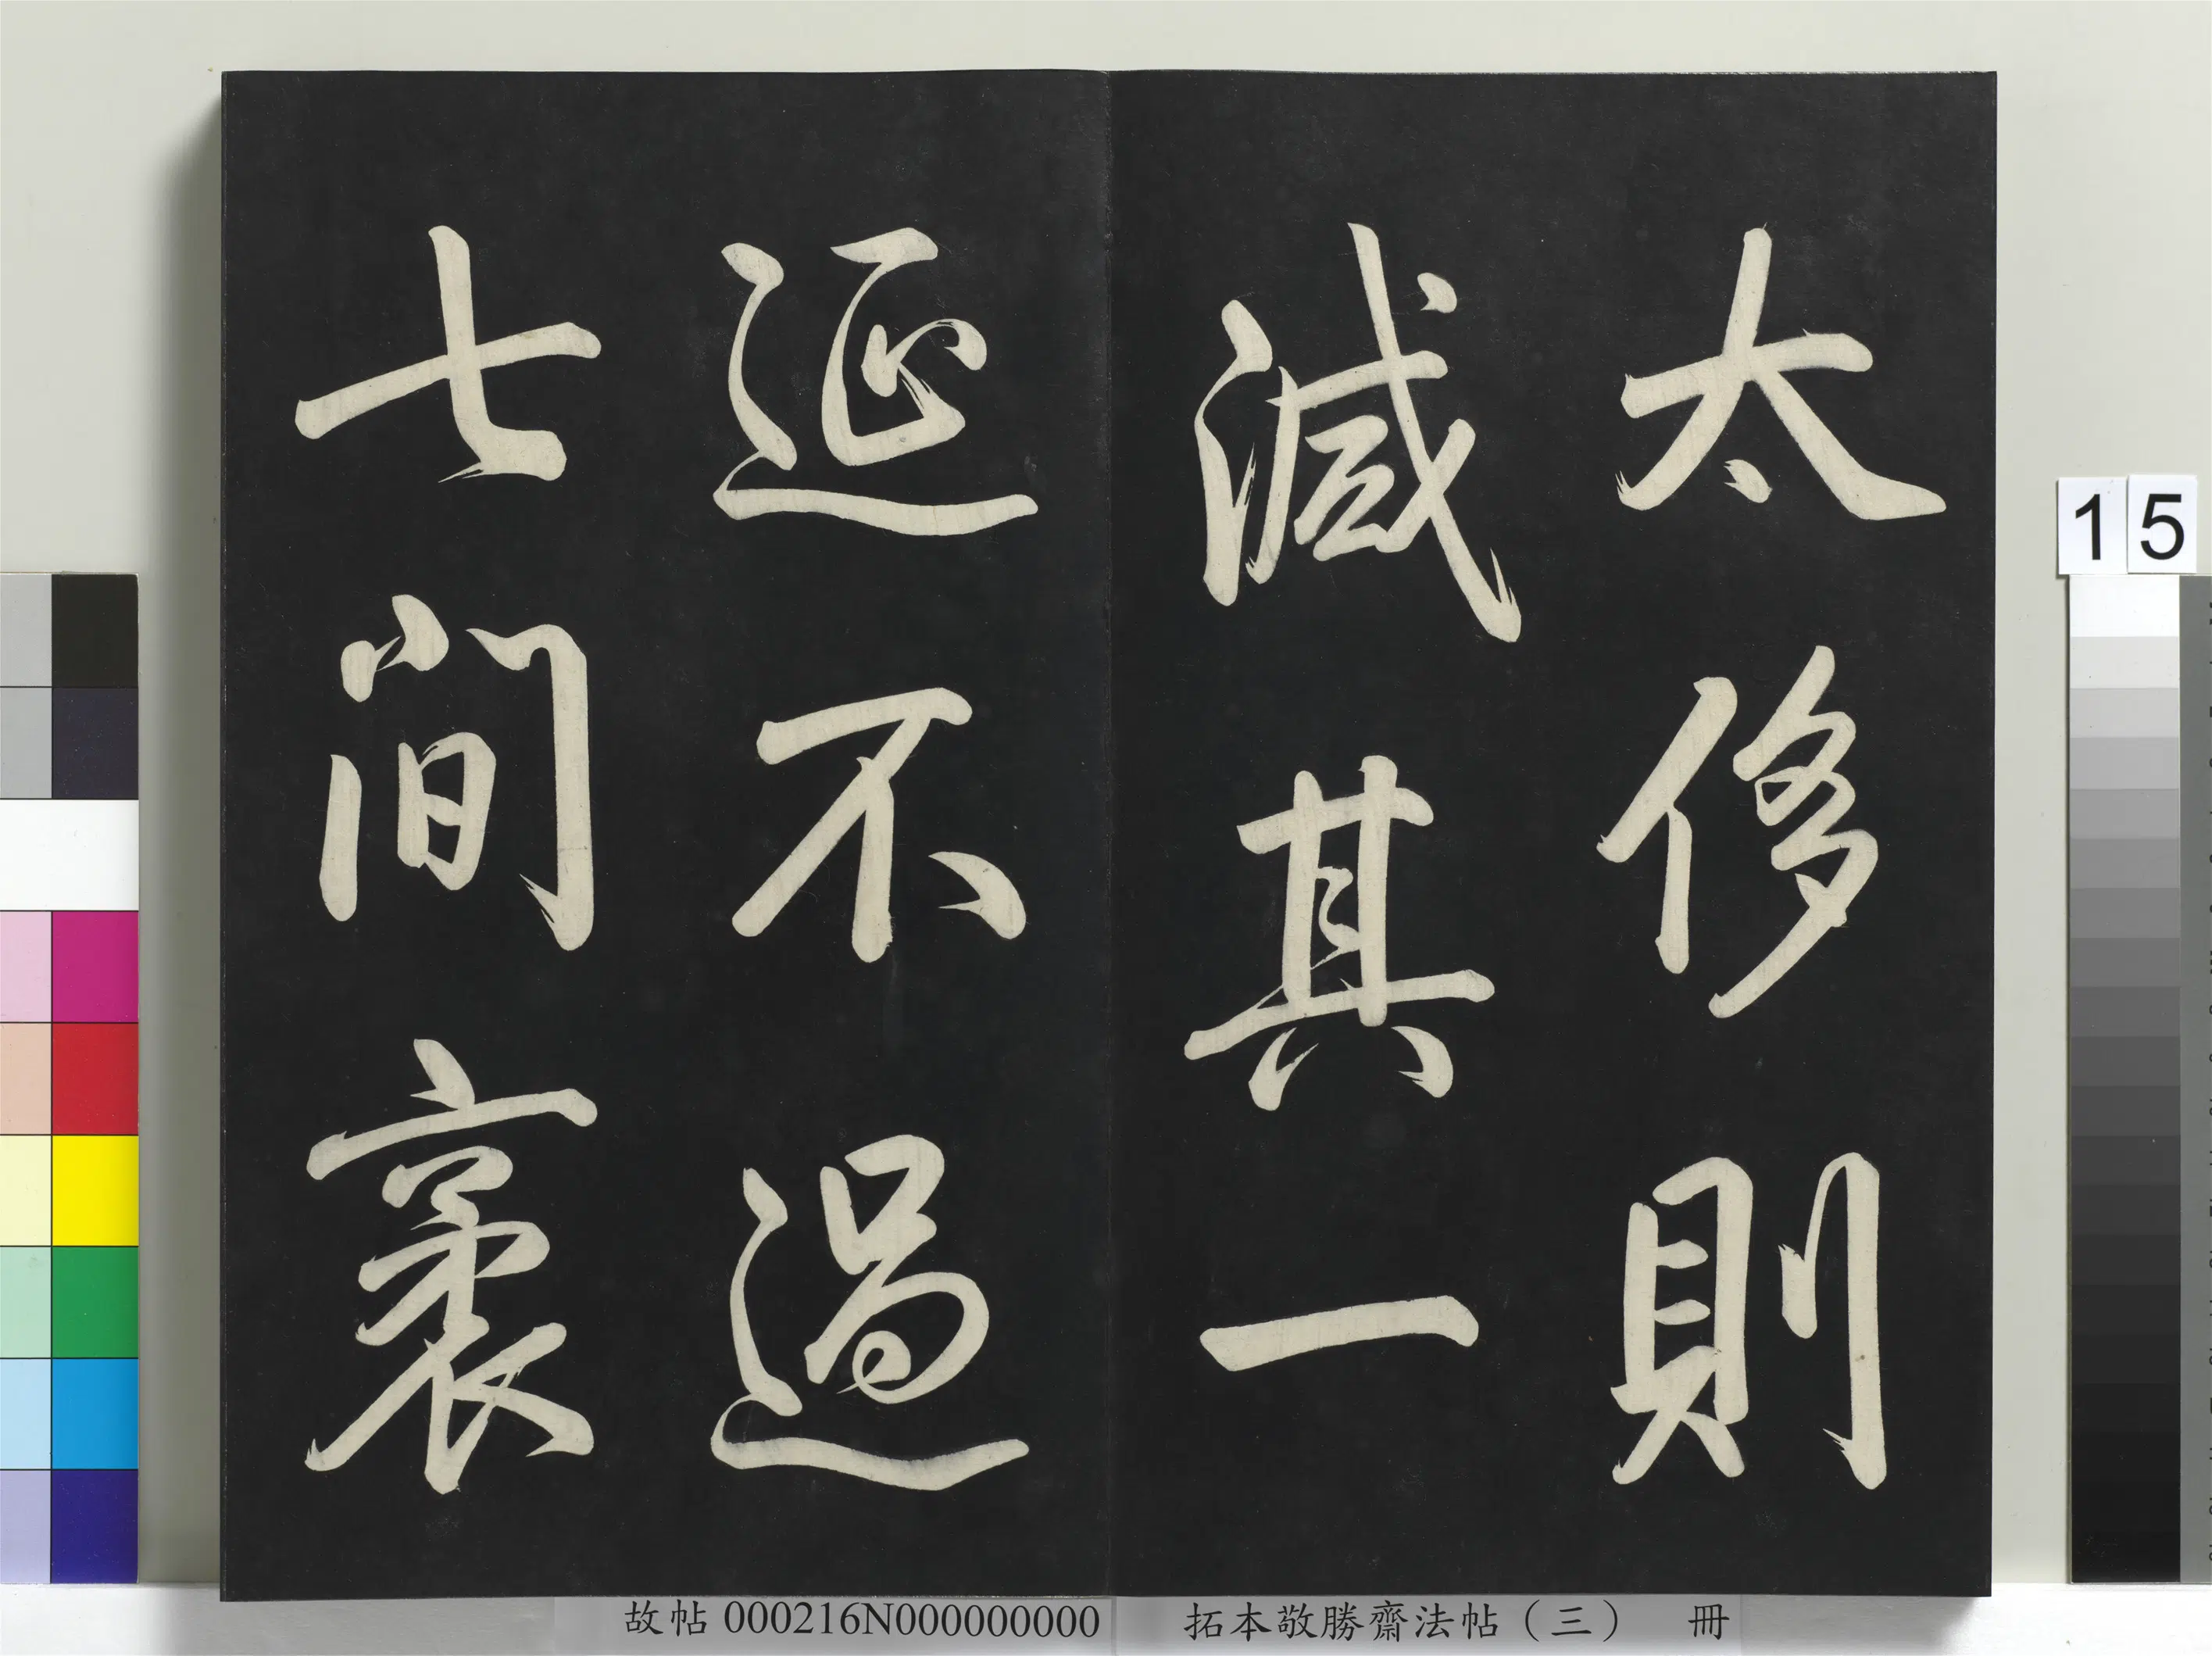 太侈則
減其一
延不過
七間袤
15
故帖 000216N000000000
拓本敬勝齋法帖（三） 冊